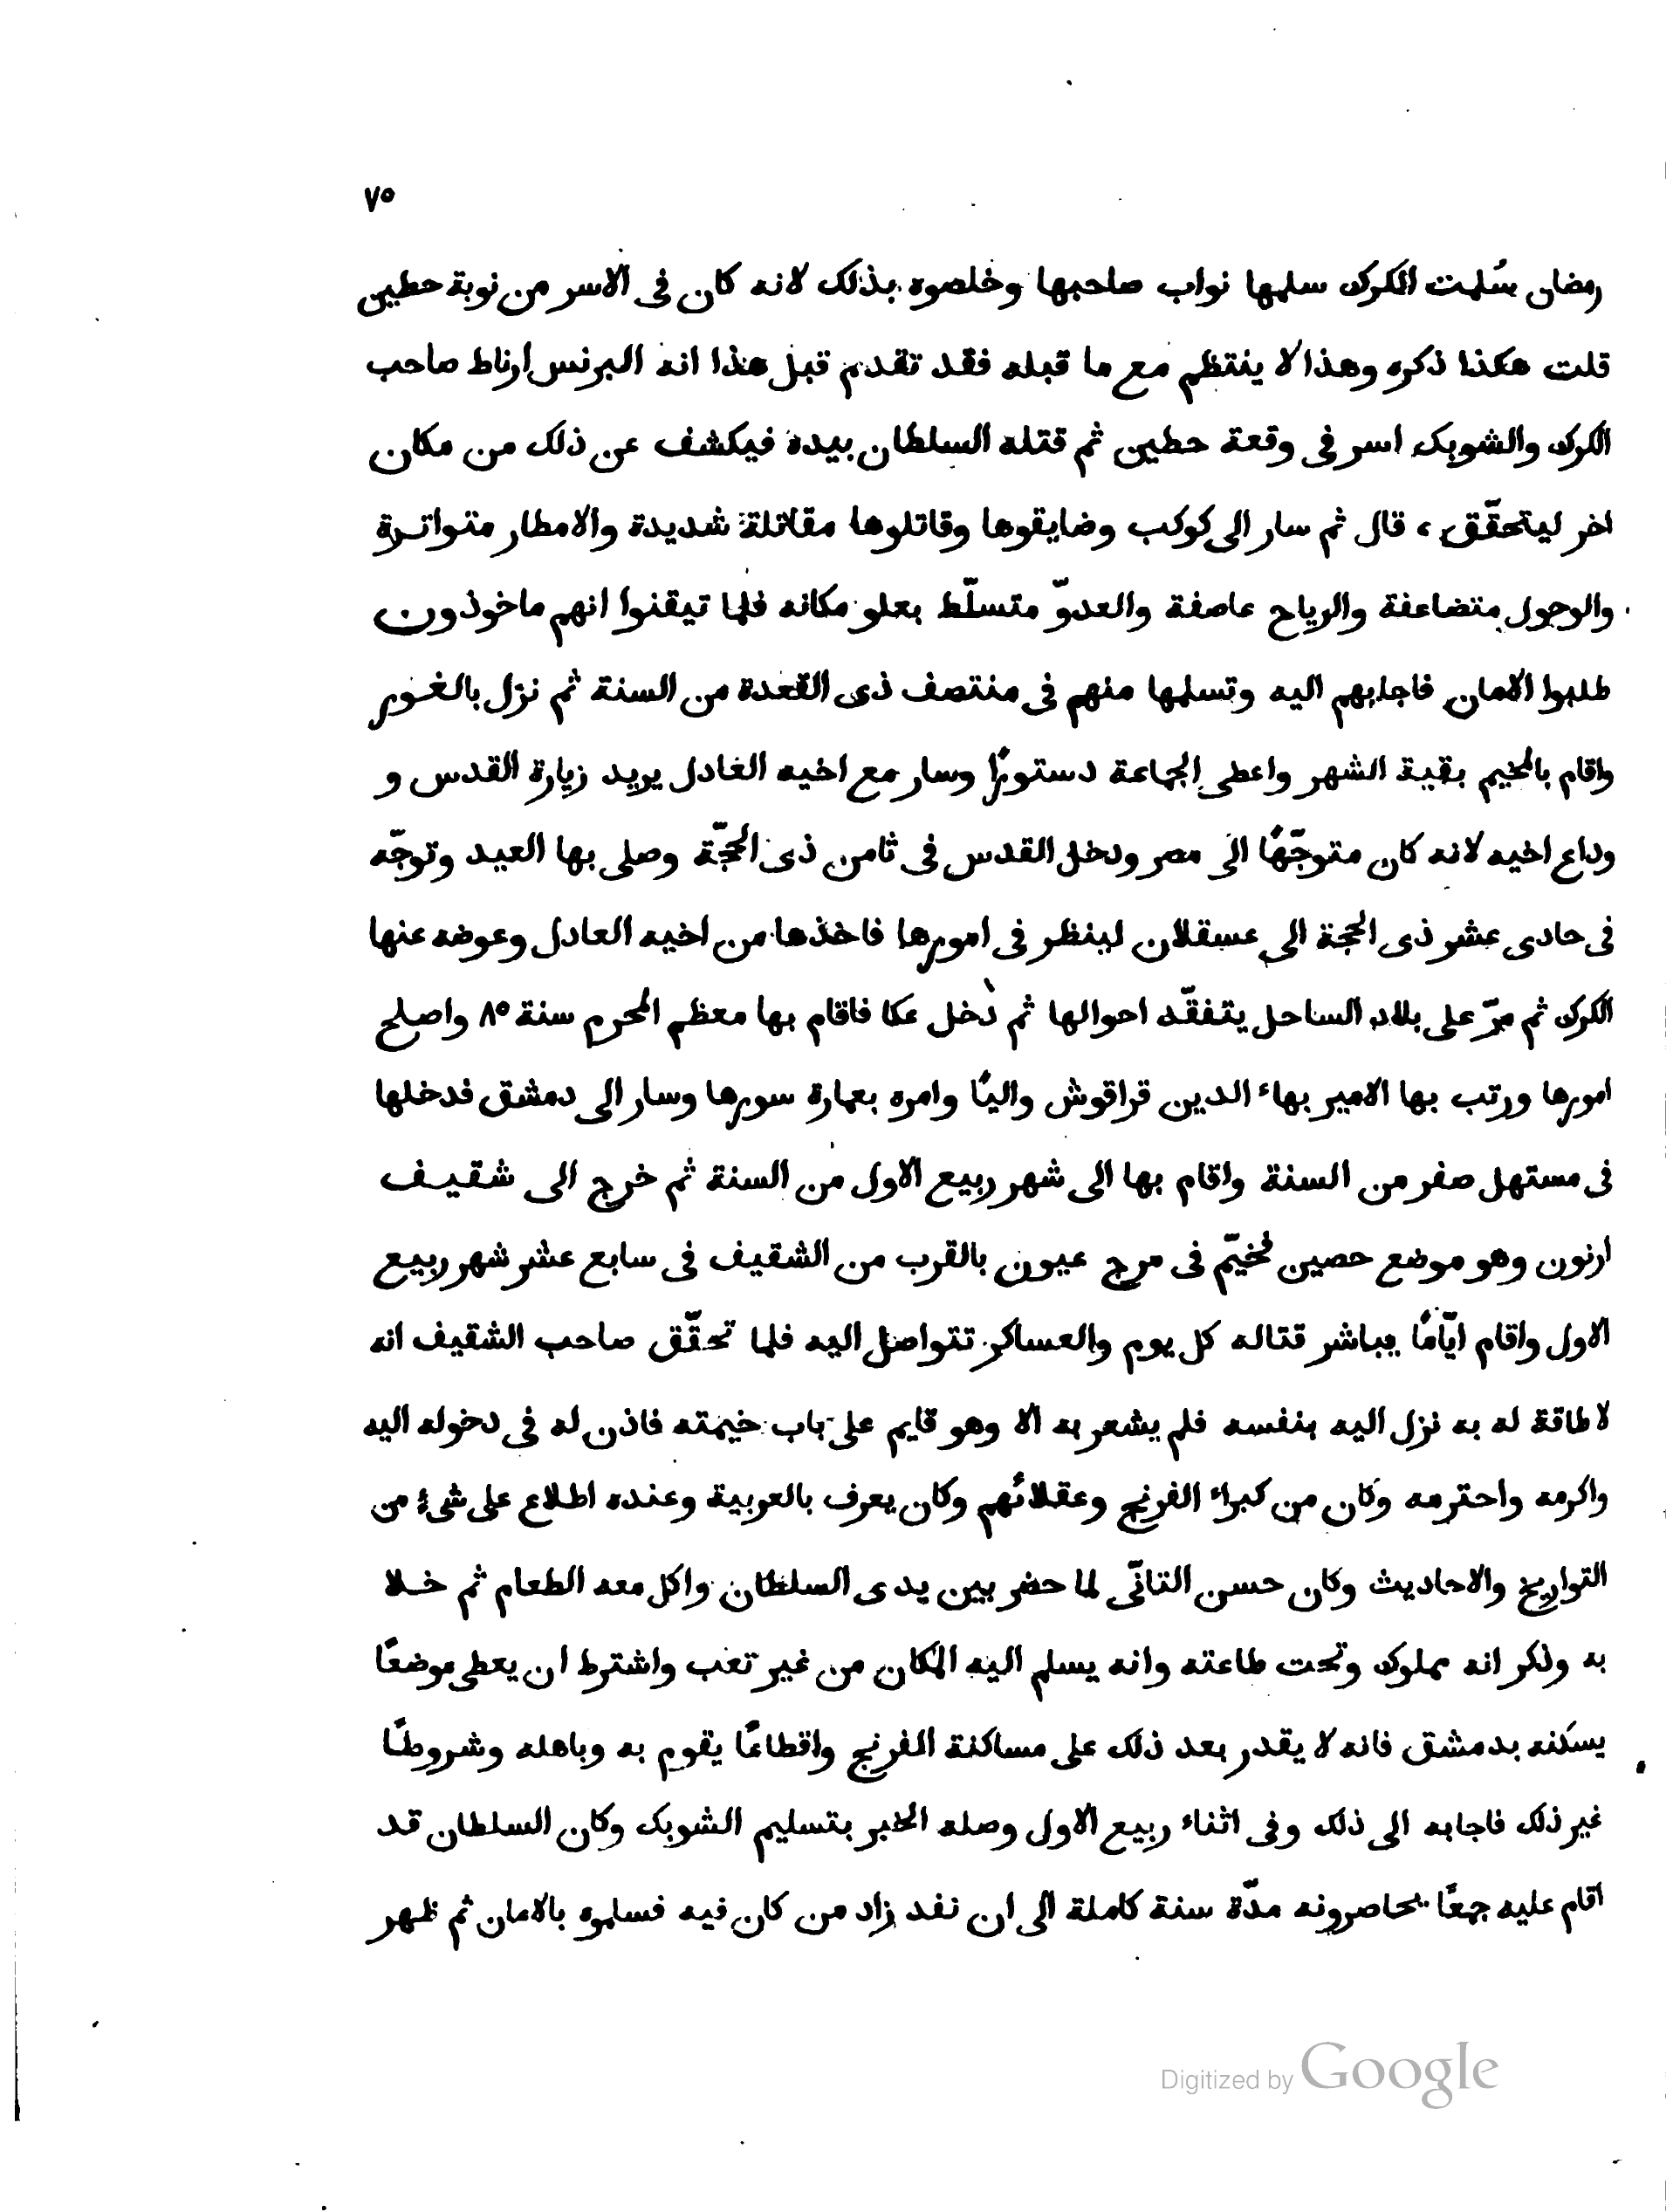 ٧٥
رمضان سُلمت الكرك سلمها نواب صاحبها وخلصوه بذلك لانه كان فى الاسر من نوبة حطين
قلت هكذا ذكره وهذا لا ينتظم مع ما قبله فقد تقدم قبل هذا انه البرنس ارناط صاحب
الكرك والشوبك اسر فى وقعة حطين ثم قتله السلطان بيده فيكشف عن ذلك من مكان
اخر ليتحقّق ، قال ثم سار الى كوكب وضايقوها وقاتلوها مقاتلة شديدة والامطار متواترة
والوحول متضاعفة والرياح عاصفة والعدوّ متسلّط بعلو مكانه فلما تيقنوا انهم ماخوذون
طلبوا الامان فاجابهم اليه وتسلمها منهم فى منتصف ذى القعدة من السنة ثم نزل بالغور
واقام بالمخيم بقية الشهر واعطى الجماعة دستورًا وسار مع اخيه العادل يريد زيارة القدس و
وداع اخيه لانه كان متوجّهًا الى مصر ودخل القدس فى ثامن ذى الحجّة وصلى بها العيد وتوجّه
فى حادى عشر ذى الحجة الى عسقلان لينظر فى امورها فاخذها من اخيه العادل وعوضه عنها
الكرك ثم مرّ على بلاد الساحل يتفقّد احوالها ثم دخل عكا فاقام بها معظم المحرم سنة ٨٥ واصلح
امورها ورتب بها الامير بهاء الدين قراقوش واليًا وامره بعمارة سورها وسار الى دمشق فدخلها
فى مستهل صفر من السنة واقام بها الى شهر ربيع الاول من السنة ثم خرج الى شقيف
ارنون وهو موضع حصين فخيّم فى مرج عيون بالقرب من الشقيف فى سابع عشر شهر ربيع
الاول واقام ايّامًا يباشر قتاله كل يوم والعساكر تتواصل اليه فلما تحقّق صاحب الشقيف انه
لا طاقة له به نزل اليه بنفسه فلم يشعر به الا وهو قايم على باب خيمته فاذن له فى دخوله اليه
واكرمه واحترمه وكان من كبراء الفرنج وعقلائهم وكان يعرف بالعربية وعنده اطلاع على شىء من
التواريخ والاحاديث وكان حسن التانّى لما حضر بين يدى السلطان واكل معه الطعام ثم خلا
به وذكر انه مملوك وتحت طاعته وانه يسلم اليه المكان من غير تعب واشترط ان يعطى موضعًا
يسكنه بدمشق فانه لا يقدر بعد ذلك على مساكنة الفرنج واقطاعًا يقوم به وباهله وشروطًا
غير ذلك فاجابه الى ذلك وفى اثناء ربيع الاول وصله الخبر بتسليم الشوبك وكان السلطان قد
اقام عليه جمعًا يحاصرونه مدّة سنة كاملة الى ان نفد زاد من كان فيه فسلموه بالامان ثم ظهر
Digitized by Google